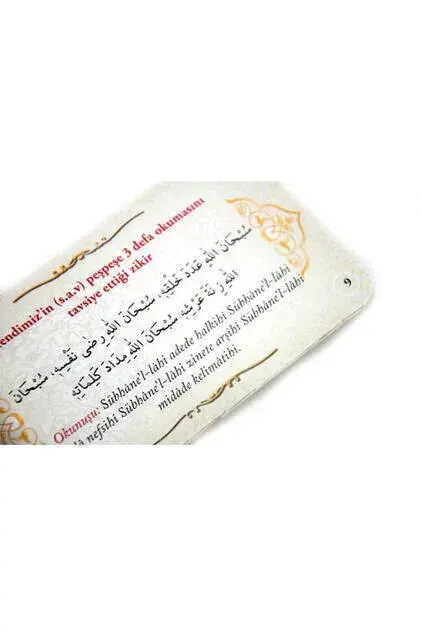 endimiz'in (s.a.v) peşpeşe 3 defa okumasını
tavsiye ettiği zikir
سُبْحَانَ اللهِ عَدَدَ خَلْقِهِ، سُبْحَانَ اللهِ رِضٰى نَفْسِهِ، سُبْحَانَ
اللهِ زِنَةَ عَرْشِهِ، سُبْحَانَ اللهِ مِدَادَ كَلِمَاتِهِ
Okunuşu: Sübhâne'l-lâhi adede halkıhî Sübhâne'l-lâhi
dâ nefsihî Sübhâne'l-lâhi zinete arşihî Sübhâne'l-lâhi
midâde kelimâtihî.
9